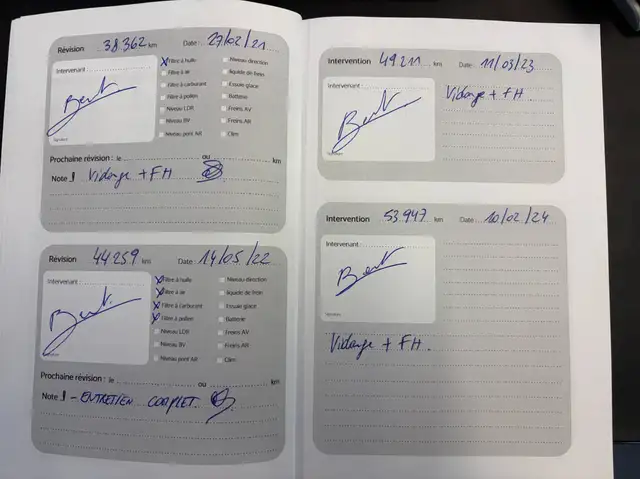 Révision 38.362 km Date : 27/02/21
Intervenant :
Filtre à huile Niveau direction
Filtre à air liquide de frein
Filtre à carburant Essuie glace
Filtre à pollen Batterie
Niveau LDR Freins AV
Niveau BV Freins AR
Niveau pont AR Clim
Prochaine révision : le ou km
Note : Vidange + FH
Révision 44259 km Date : 14/05/22
Intervenant :
Filtre à huile Niveau direction
Filtre à air liquide de frein
Filtre à carburant Essuie glace
Filtre à pollen Batterie
Niveau LDR Freins AV
Niveau BV Freins AR
Niveau pont AR Clim
Prochaine révision : le ou km
Note : - ENTRETIEN COMPLET
Intervention 49211 km Date : 11/03/23
Intervenant :
Vidange + FH.
Intervention 53.947 km Date : 10/02/24
Intervenant :
Vidange + FH.